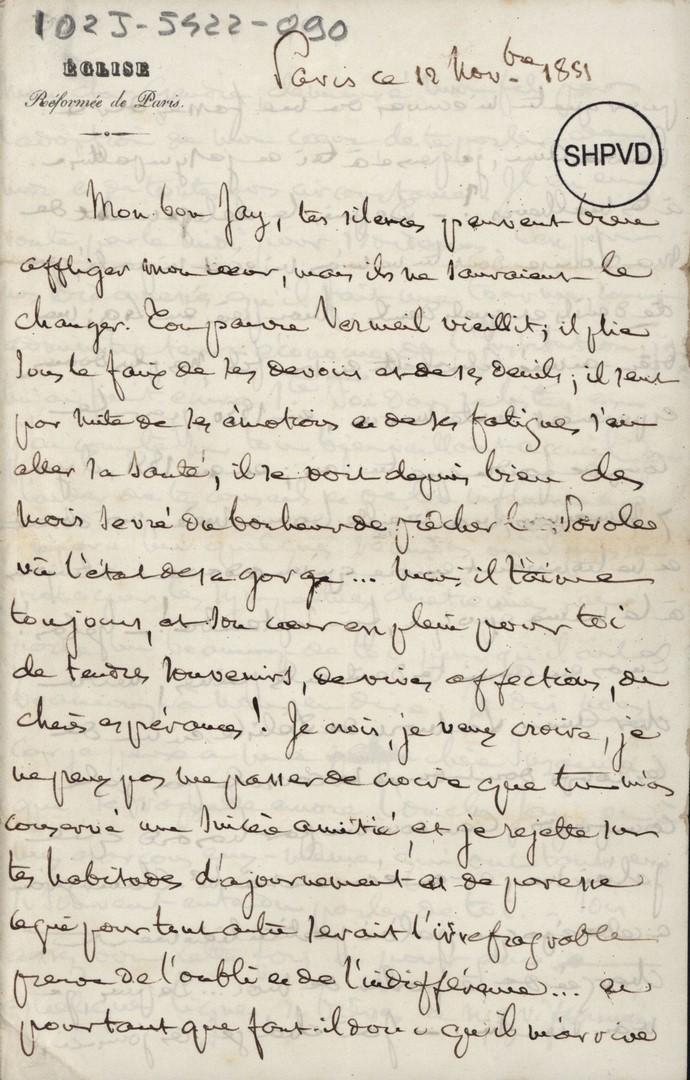 102J-5422-090
ÉGLISE
Réformée de Paris.
Paris ce 12 Nov.bre 1851
SHPVD
Mon bon Jay, tes silences peuvent bien
affliger mon cœur, mais ils ne sauraient le
changer. Ton pauvre Vermeil vieillit; il plie
sous le faix de ses devoirs et de ses deuils; il sent
par suite de ses émotions et de ses fatigues s'en
aller sa santé, il se voit depuis bien des
mois sevré du bonheur de prêcher la Parole
vu l'état de sa gorge... Mais il t'aime
toujours, et son cœur est plein pour toi
de tendres souvenirs, de vives affections, de
chères espérances! Je crois, je veux croire, je
ne peux pas me passer de croire que tu m'as
conservé une sincère amitié, et je rejette sur
tes habitudes d'ajournement et de paresse
ce qui pour tout autre serait l'irréfragable
preuve de l'oubli et de l'indifférence... et
pourtant que faut-il donc qu'il m'arrive